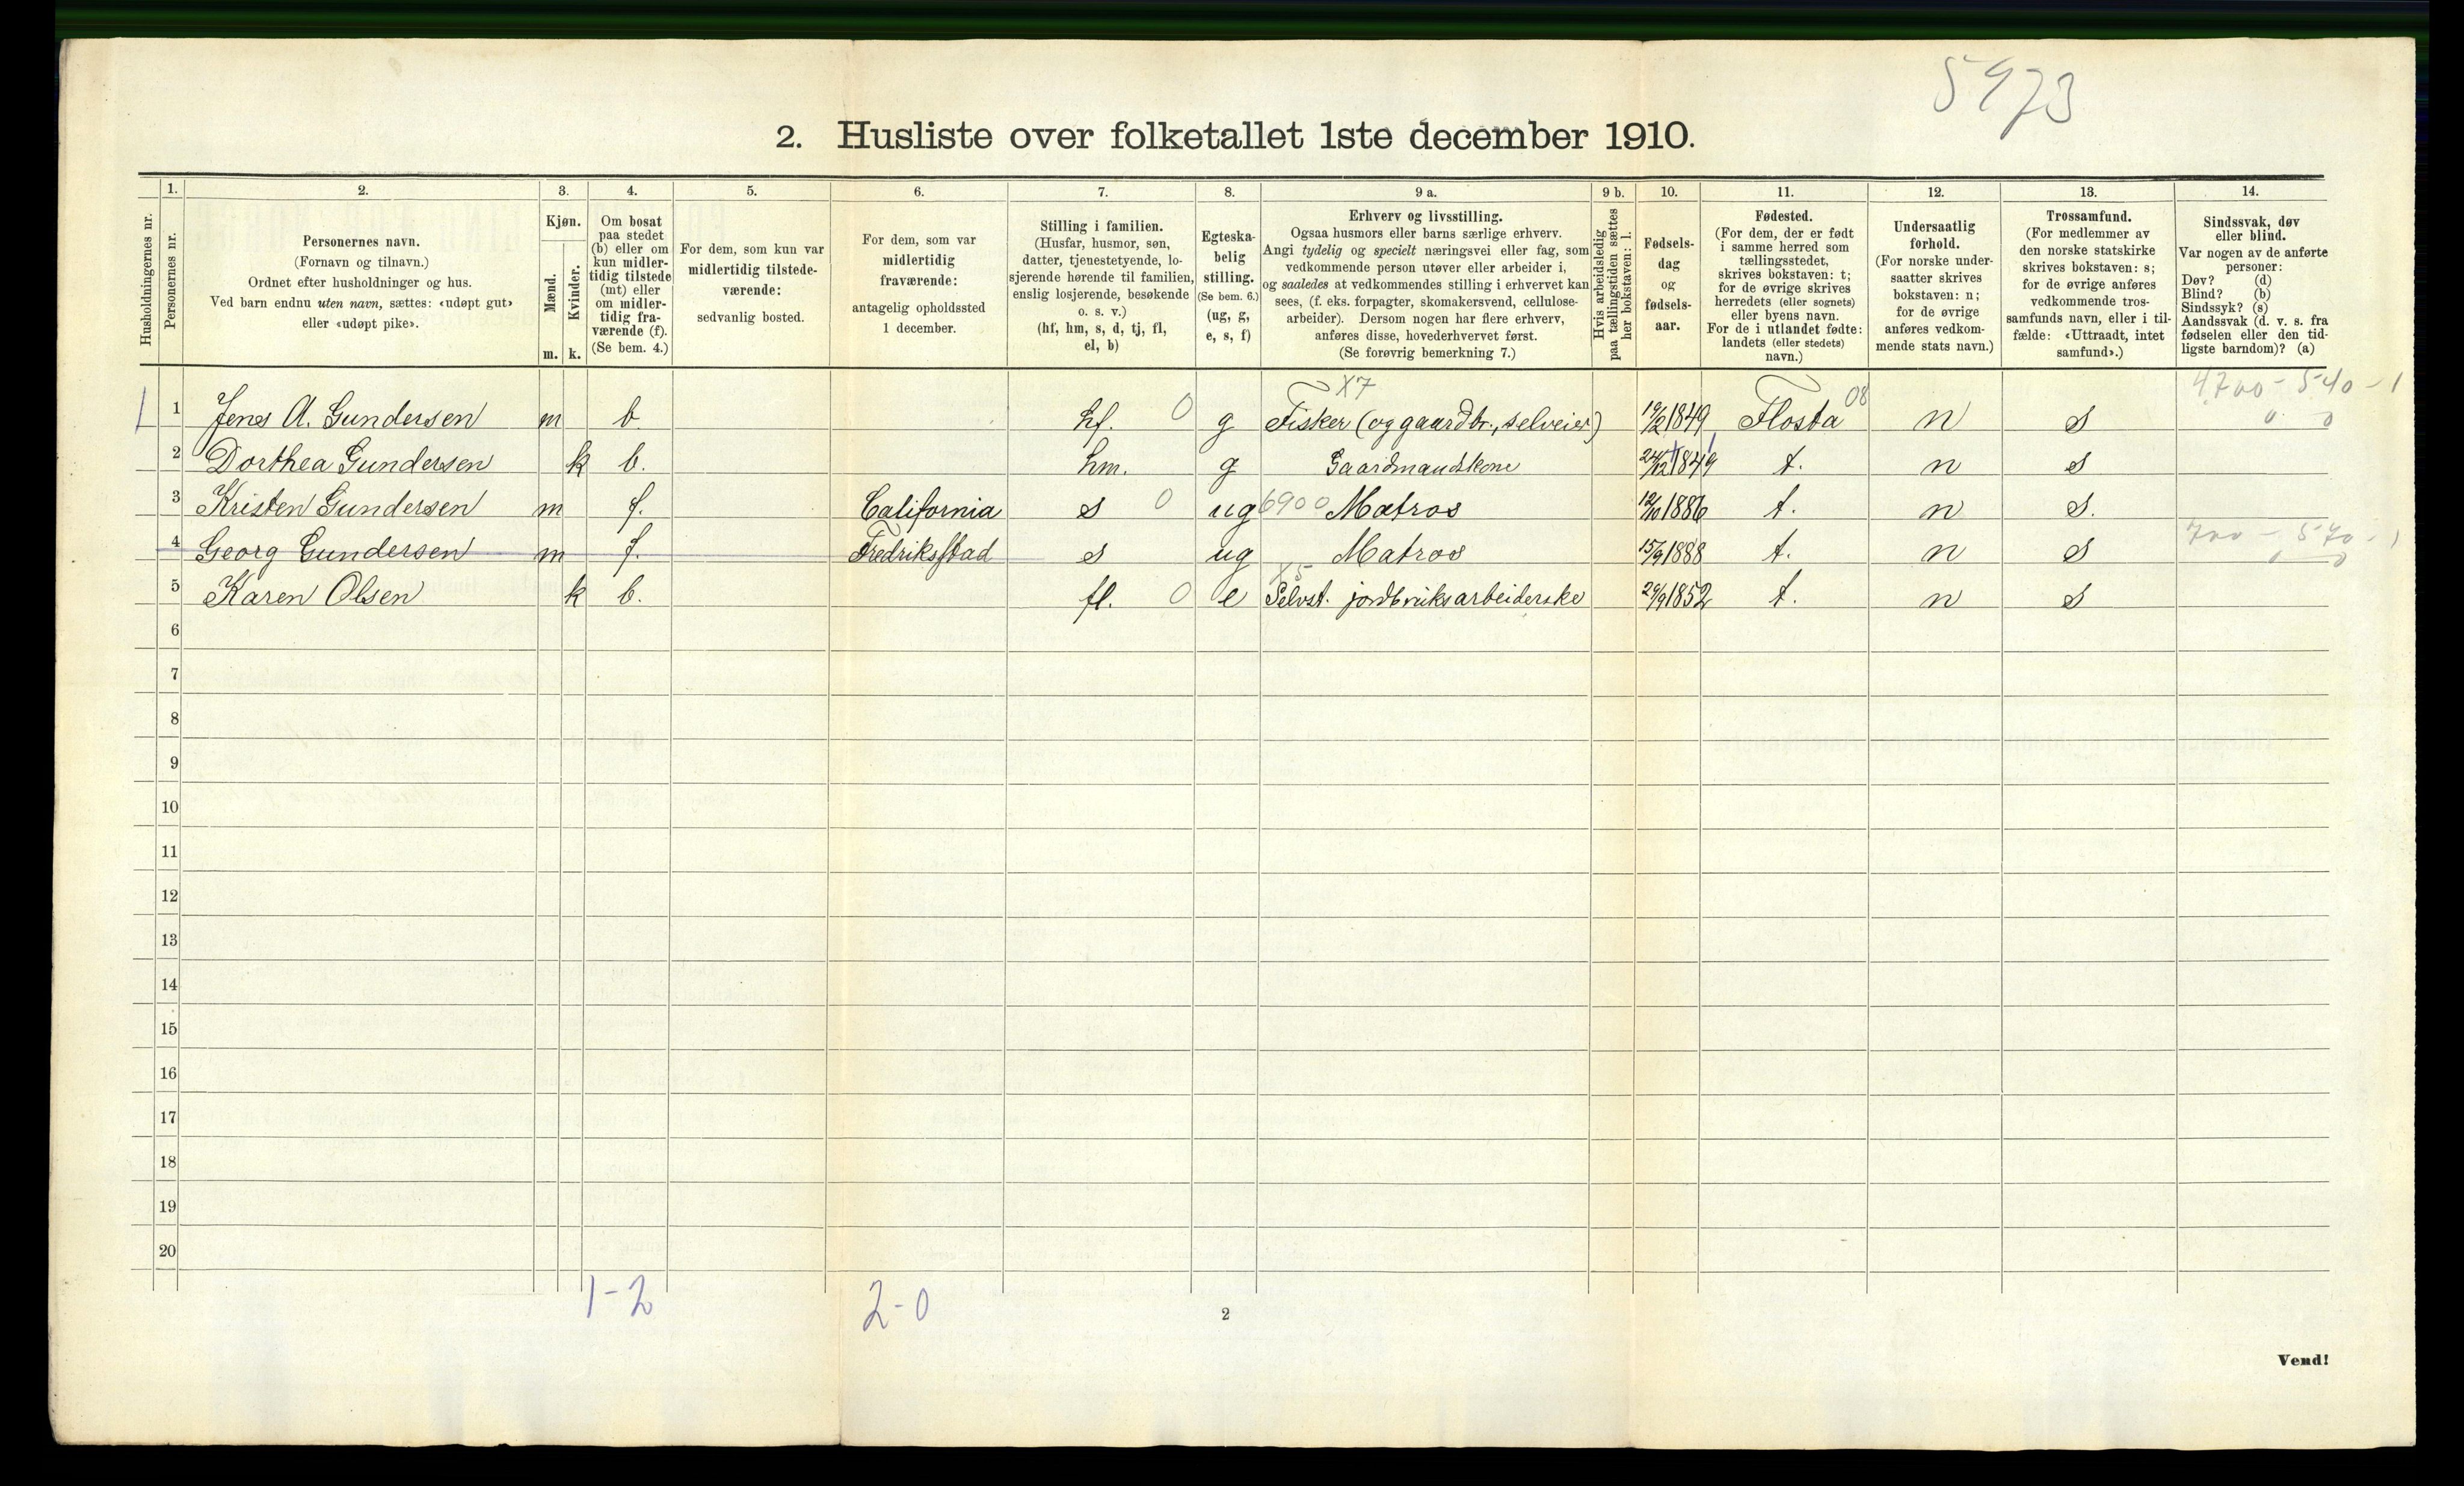 5973
2. Husliste over folketallet 1ste december 1910.
Husholdningernes nr.
1.
Personernes nr.
2.
Personernes navn.
(Fornavn og tilnavn.)
Ordnet efter husholdninger og hus.
Ved barn endnu uten navn, sættes: «udøpt gut»
eller «udøpt pike».
3.
Kjøn.
Mænd.
Kvinder.
m. k.
4.
Om bosat
paa stedet
(b) eller om
kun midler-
tidig tilstede
(mt) eller
om midler-
tidig fra-
værende (f).
(Se bem. 4.)
5.
For dem, som kun var
midlertidig tilstede-
værende:
sedvanlig bosted.
6.
For dem, som var
midlertidig
fraværende:
antagelig opholdssted
1 december.
7.
Stilling i familien.
(Husfar, husmor, søn,
datter, tjenestetyende, lo-
sjerende hørende til familien,
enslig losjerende, besøkende
o. s. v.)
(hf, hm, s, d, tj, fl,
el, b)
8.
Egteska-
belig
stilling.
(Se bem. 6.)
(ug, g,
e, s, f)
9 a.
Erhverv og livsstilling.
Ogsaa husmors eller barns særlige erhverv.
Angi tydelig og specielt næringsvei eller fag, som
vedkommende person utøver eller arbeider i,
og saaledes at vedkommendes stilling i erhvervet kan
sees, (f. eks. forpagter, skomakersvend, cellulose-
arbeider). Dersom nogen har flere erhverv,
anføres disse, hovederhvervet først.
(Se forøvrig bemerkning 7.)
9 b.
Hvis arbeidsledig
paa tællingstiden sættes
her bokstaven: l.
10.
Fødsels-
dag
og
fødsels-
aar.
11.
Fødested.
(For dem, der er født
i samme herred som
tællingsstedet,
skrives bokstaven: t;
for de øvrige skrives
herredets (eller sognets)
eller byens navn.
For de i utlandet fødte:
landets (eller stedets)
navn.)
12.
Undersaatlig
forhold.
(For norske under-
saatter skrives
bokstaven: n;
for de øvrige
anføres vedkom-
mende stats navn.)
13.
Trossamfund.
(For medlemmer av
den norske statskirke
skrives bokstaven: s;
for de øvrige anføres
vedkommende tros-
samfunds navn, eller i til-
fælde: «Uttraadt, intet
samfund».)
14.
Sindssvak, døv
eller blind.
Var nogen av de anførte
personer:
Døv? (d)
Blind? (b)
Sindssyk? (s)
Aandssvak (d. v. s. fra
fødselen eller den tid-
ligste barndom)? (a)
X7 08 4700 - 540 - 1
1 1 Jens A. Gundersen m b hf. 0 g Fisker (og gaardbr., selveier) 1849 Flosta n s 0 0
2 Dorthea Gundersen k b. hm. g Gaardmandskone 24/12 1849 t. n s
3 Kristen Gundersen m f. California s 0 ug 6900 Matros 12/10 1886 t. n s.
4 Georg Gundersen m f. Fredriksstad s ug Matros 15/9 1888 t. n s 700 - 570 - 1
X5
5 Karen Olsen k b. fl. 0 e Selvst. jordbruksarbeiderske 29/9 1852 t. n s
6
7
8
9
10
11
12
13
14
15
16
17
18
19
20
1-2 2-0
2
Vend!